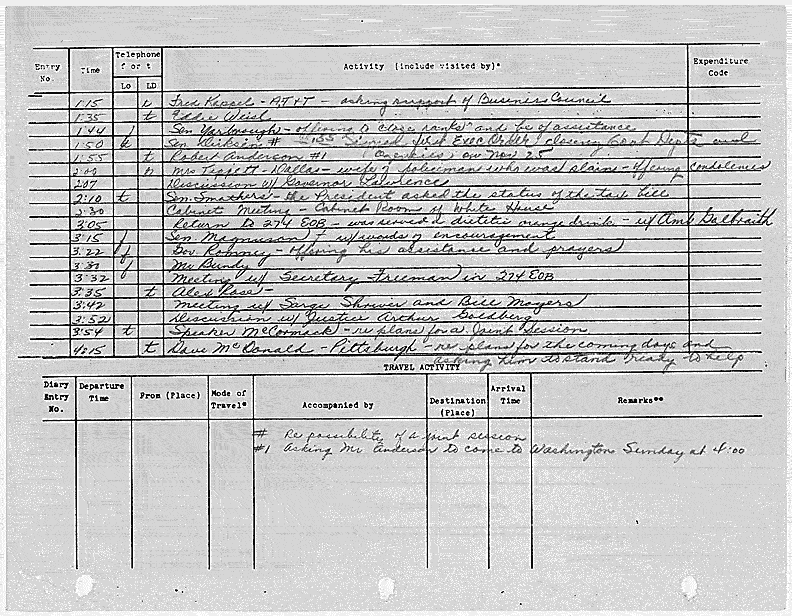 Entry No. Time Telephone f or t Lo LD Activity (include visited by)* Expenditure Code
1:15 Fred Kappel - AT&T - asking support of Business Council
1:35 t Eddie Weisl
1:44 f Sen Yarborough - offering to "close ranks" and be of assistance
1:50 Sen Dirksen # 1:55 Signed first Exec Order closing Govt Depts and
1:55 t Robert Anderson #1 (agencies) on Nov 25
2:00 Mrs Tippett - Dallas - wife of policeman who was slain - offering condolences
2:07 Discussion w/ Governor Lawrence
2:10 t Sen. Smathers - the President asked the status of the tax bill
2:30 Cabinet Meeting - Cabinet Room of White House
3:05 Return to 274 EOB - was served a dietetic orange drink - w/ Amb Galbraith
3:15 f Sen. Magnuson - w/ words of encouragement
3:22 f Gov. Romney - offering his assistance and prayers
3:31 f Mr Bundy
3:32 Meeting w/ Secretary Freeman in 274 EOB
3:35 t Alex Rose -
3:42 meeting w/ Sarge Shriver and Bill Moyers
3:52 Discussion w/ Justice Arthur Goldberg
3:54 t Speaker McCormack - re plans for a Joint Session
4:15 t Dave McDonald - Pittsburgh - re plans for the coming days and
asking him to stand ready to help
TRAVEL ACTIVITY
Diary Entry No. Departure Time From (Place) Mode of Travel* Accompanied by Destination (Place) Arrival Time Remarks**
# Re possibility of a joint session
#1 Asking Mr Anderson to come to Washington Sunday at 4:00